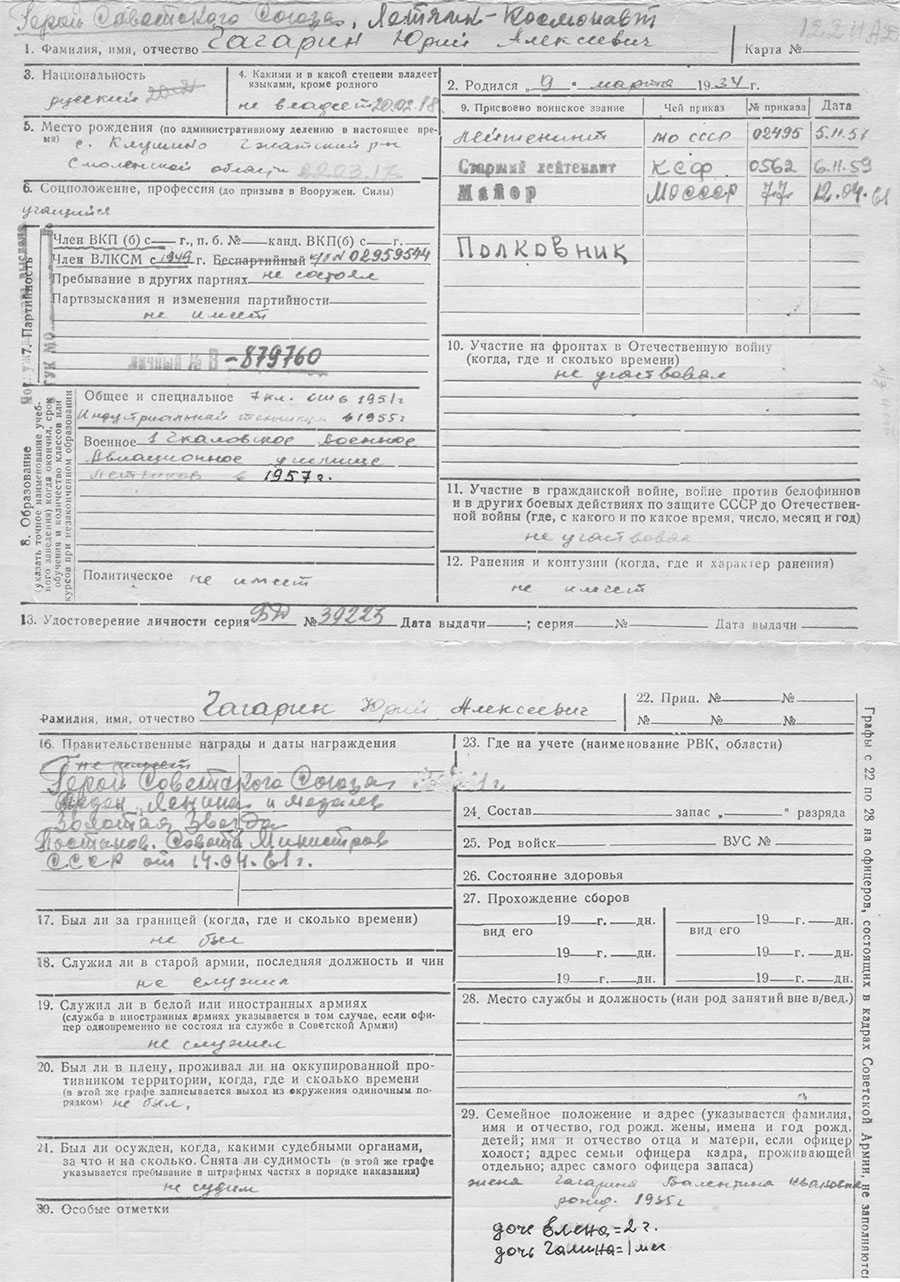 Герой Советского Союза, Летчик-Космонавт
1. Фамилия, имя, отчество Гагарин Юрий Алексеевич
Карта №
122НА
3. Национальность
русский
4. Какими и в какой степени владеет
языками, кроме родного
не владеет 20.02.18
2. Родился „9" марта 1934 г.
5. Место рождения (по административному делению в настоящее вре-
мя)
с. Клушино Гжатский р-н
Смоленской области 22.03.17
6. Соцположение, профессия (до призыва в Вооружен. Силы)
учащийся
9. Присвоено воинское звание Чей приказ № приказа Дата
лейтенант МО СССР 02495 5.11.57
Старший лейтенант КСФ 0562 6.11.59
Майор МО СССР 77 12.04.61
Полковник
7. Партийность
Член ВКП (б) с г., п. б. № канд. ВКП(б) с г.
Член ВЛКСМ с 1949 г. Беспартийный 02959544
Пребывание в других партиях не состоял
Партвзыскания и изменения партийности
не имеет
Личный № В -879760
8. Образование
(указать точное наименование учеб-
ного заведения) когда окончил, срок
обучения и количество классов или
курсов при незаконченном образовании
Общее и специальное 7 кл. сш в 1951г
Индустриальный техникум в 1955г
Военное 1 Чкаловское Военное
Авиационное училище
летчиков в 1957г.
Политическое не имеет
10. Участие на фронтах в Отечественную войну
(когда, где и сколько времени)
не участвовал
11. Участие в гражданской войне, войне против белофиннов
и в других боевых действиях по защите СССР до Отечествен-
ной войны (где, с какого и по какое время, число, месяц и год)
не участвовал
12. Ранения и контузии (когда, где и характер ранения)
не имеет
13. Удостоверение личности серия БД № 39223 Дата выдачи ; серия № Дата выдачи
Фамилия, имя, отчество Гагарин Юрий Алексеевич
22. Прип. № №
№ № №
16. Правительственные награды и даты награждения
не имеет
Герой Советского Союза
Орден Ленина и медалев
Золотая Звезда
Постанов. Совета Министров
СССР от 14.04.61г.
17. Был ли за границей (когда, где и сколько времени)
не был
18. Служил ли в старой армии, последняя должность и чин
не служил
19. Служил ли в белой или иностранных армиях
(служба в иностранных армиях указывается в том случае, если офи-
цер одновременно не состоял на службе в Советской Армии)
не служил
20. Был ли в плену, проживал ли на оккупированной про-
тивником территории, когда, где и сколько времени
(в этой же графе записывается выход из окружения одиночным по-
рядком) не был.
21. Был ли осужден, когда, какими судебными органами,
за что и на сколько. Снята ли судимость (в этой же графе
указывается пребывание в штрафных частях в порядке наказания)
не судим
30. Особые отметки
23. Где на учете (наименование РВК, области)
24. Состав запас „ " разряда
25. Род войск ВУС №
26. Состояние здоровья
27. Прохождение сборов
19 г. дн. 19 г. дн.
вид его вид его
19 г. дн. 19 г. дн.
19 г. дн. 19 г. дн.
28. Место службы и должность (или род занятий вне в/вед.)
29. Семейное положение и адрес (указывается фамилия,
имя и отчество, год рожд. жены, имена и год рожд.
детей; имя и отчество отца и матери, если офицер
холост; адрес семьи офицера кадра, проживающей
отдельно; адрес самого офицера запаса)
жена Гагарина Валентина Ивановна
рожд. 1935г
дочь Елена=2 г.
дочь Галина=1 мес
Графы с 22 по 28 на офицеров, состоящих в кадрах Советской Армии, не заполняются